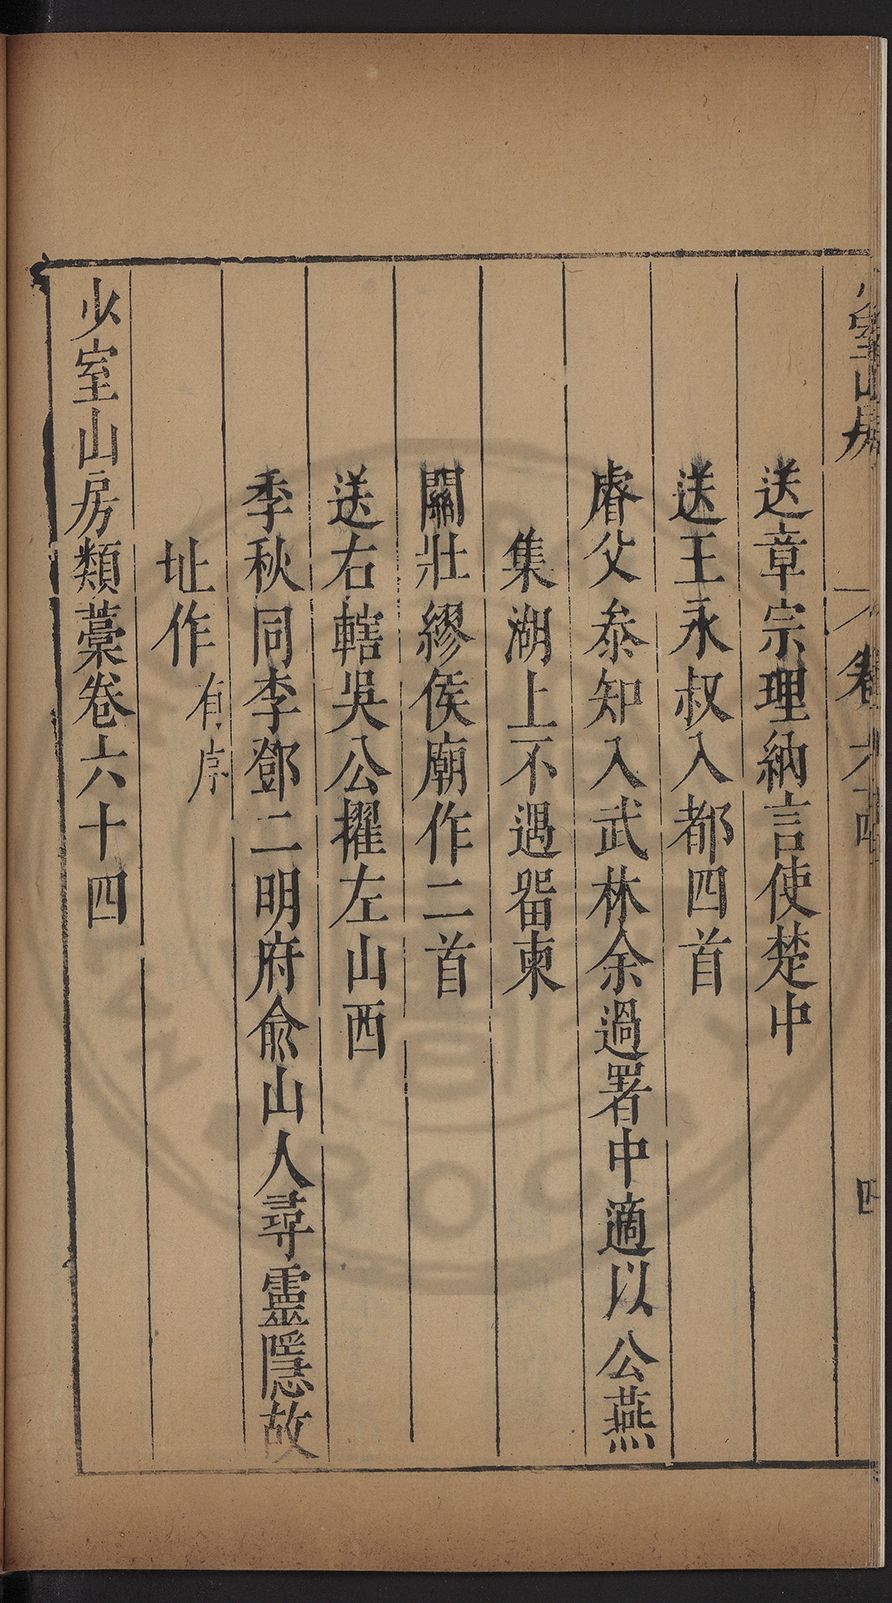 少室山房
卷六十四
四
送章宗理納言使楚中
送王永叔入都四首
睿父叅知入武林余過署中適以公燕
集湖上不遇畱柬
關壯繆侯廟作二首
送右轄吳公擢左山西
季秋同李鄧二明府俞山人尋靈隱故
址作有序
少室山房類藁卷六十四